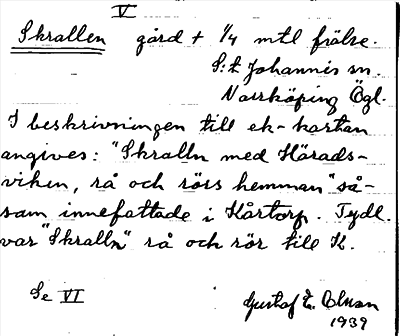 V
Skrallen gård + 1/4 mtl frälse.
S:t Johannis sn.
Norrköping Ögl.
I beskrivningen till ek-kartan
angives: "Skralln med Härads-
viken, rå och rörs hemman" så-
som innefattade i Kårtorp. Tydl.
var "Skralln" rå och rör till K.
Se VI
Gustaf E. Olsson
1939